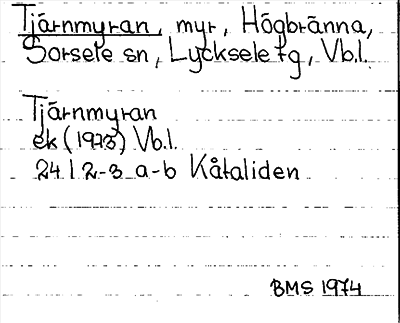 Tjärnmyran, myr, Högbränna,
Sorsele sn, Lycksele tg, Vb.l.
Tjärnmyran
ek (1973) Vb.l.
24 I 2-3 a-b Kåtaliden
BMS 1974